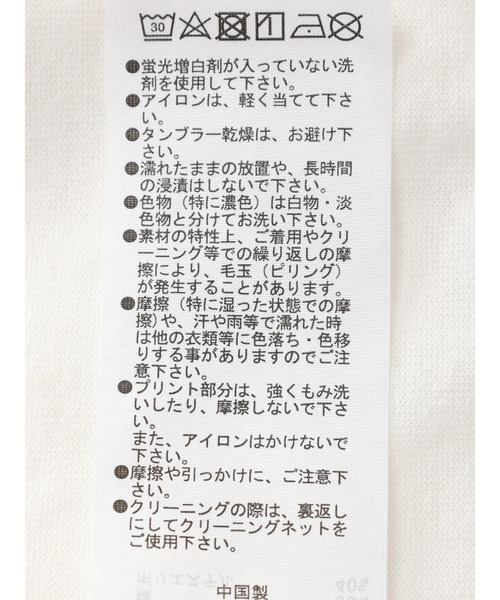 30
●蛍光増白剤が入っていない洗
剤を使用して下さい。
●アイロンは、軽く当てて下さ
い。
●タンブラー乾燥は、お避け下
さい。
●濡れたままの放置や、長時間
の浸漬はしないで下さい。
●色物（特に濃色）は白物・淡
色物と分けてお洗い下さい。
●素材の特性上、ご着用やクリ
ーニング等での繰り返しの摩
擦により、毛玉（ピリング）
が発生することがあります。
●摩擦（特に湿った状態での摩
擦）や、汗や雨等で濡れた時
は他の衣類等に色落ち・色移
りする事がありますのでご注
意下さい。
●プリント部分は、強くもみ洗
いしたり、摩擦しないで下さ
い。
また、アイロンはかけないで
下さい。
●摩擦や引っかけに、ご注意下
さい。
●クリーニングの際は、裏返し
にしてクリーニングネットを
ご使用下さい。
中国製